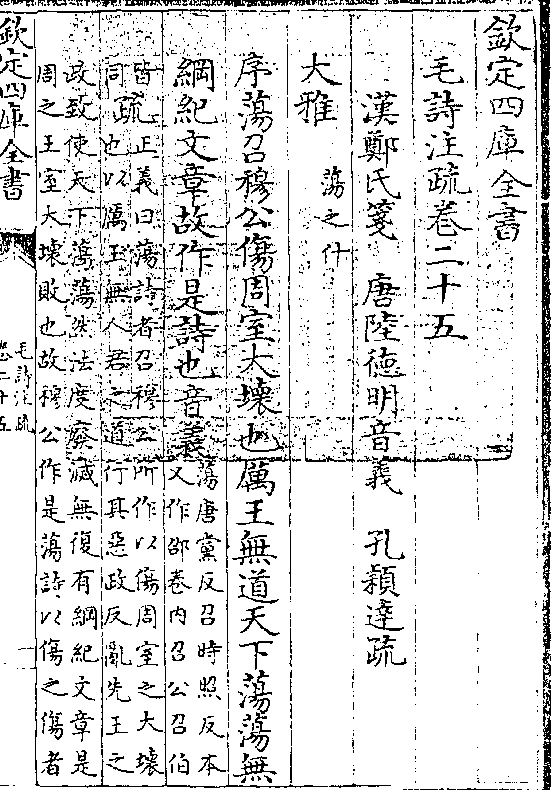 欽定四庫全書
毛詩注疏卷二十五
漢鄭氏箋 唐陸德明音義 孔穎達疏
大雅 蕩之什
序蕩召穆公傷周室大壞也厲王無道天下蕩蕩無
綱紀文章故作是詩也音義
蕩唐黨反召時照反本
又作邵卷内召公召伯
皆
同疏
正義曰蕩詩者召穆公所作以傷周室之大壞
也以厲王無人君之道行其惡政反亂先王之
政致使天下蕩蕩然法度廢滅無復有綱紀文章是
周之王室大壞敗也故穆公作是蕩詩以傷之傷者
欽定四庫全書
毛詩注疏
卷二十五